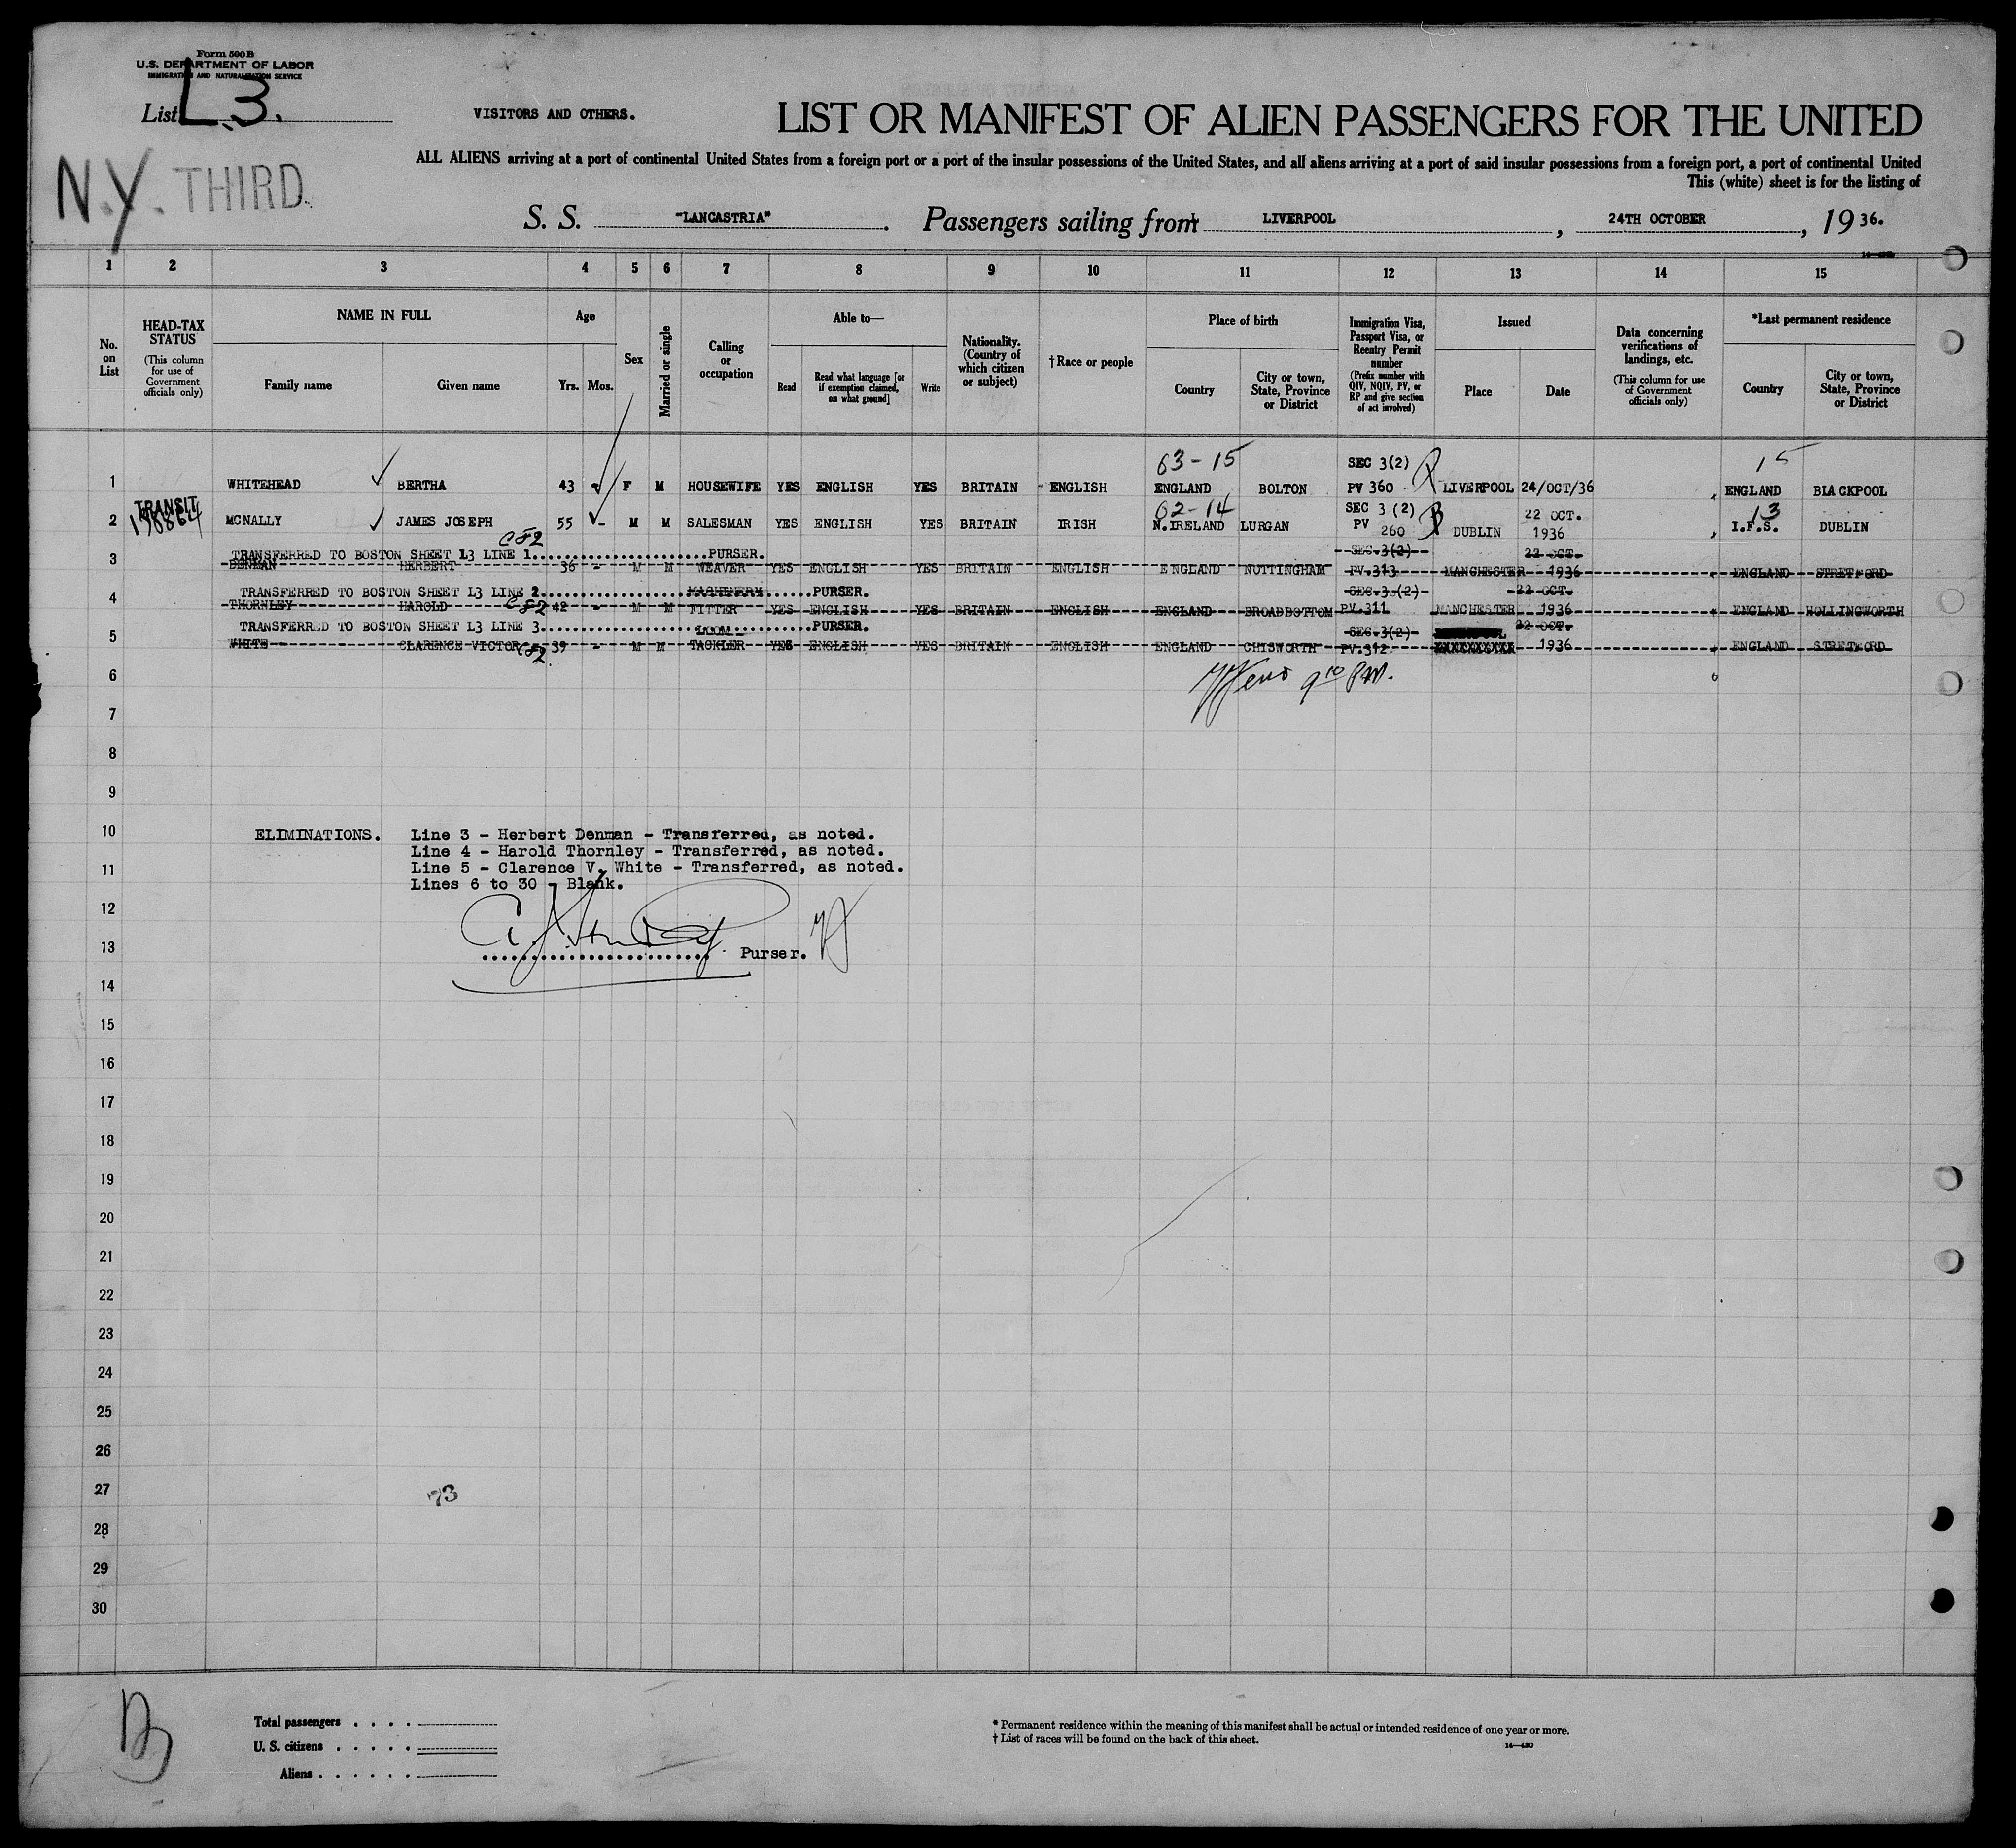 Form 500 B
U.S. DEPARTMENT OF LABOR
IMMIGRATION AND NATURALIZATION SERVICE
List L3.
VISITORS AND OTHERS.
LIST OR MANIFEST OF ALIEN PASSENGERS FOR THE UNITED
ALL ALIENS arriving at a port of continental United States from a foreign port or a port of the insular possessions of the United States, and all aliens arriving at a port of said insular possessions from a foreign port, a port of continental United
This (white) sheet is for the listing of
N.Y. THIRD.
S. S. "LANCASTRIA". Passengers sailing from LIVERPOOL, 24TH OCTOBER, 1936.
1 2 3 4 5 6 7 8 9 10 11 12 13 14 15
No. on List
HEAD-TAX STATUS
(This column for use of Government officials only)
NAME IN FULL
Family name
Given name
Age
Yrs. Mos.
Sex
Married or single
Calling or occupation
Able to—
Read
Read what language [or if exemption claimed, on what ground]
Write
Nationality. (Country of which citizen or subject)
† Race or people
Place of birth
Country
City or town, State, Province or District
Immigration Visa, Passport Visa, or Reentry Permit number
(Prefix number with QIV, NQIV, PV, or RP and give section of act involved)
Issued
Place
Date
Data concerning verifications of landings, etc.
(This column for use of Government officials only)
*Last permanent residence
Country
City or town, State, Province or District
63-15 SEC 3(2) 15
1 WHITEHEAD BERTHA 43 F M HOUSEWIFE YES ENGLISH YES BRITAIN ENGLISH ENGLAND BOLTON PV 360 LIVERPOOL 24/OCT/36 ENGLAND BLACKPOOL
TRANSIT 62-14 SEC 3 (2) 22 OCT. 13
2 MCNALLY JAMES JOSEPH 55 - M M SALESMAN YES ENGLISH YES BRITAIN IRISH N.IRELAND LURGAN PV 260 DUBLIN 1936 I.F.S. DUBLIN
3 TRANSFERRED TO BOSTON SHEET L3 LINE 1. PURSER. SEC.3(2) 22 OCT.
DENMAN HERBERT 36 - M M WEAVER YES ENGLISH YES BRITAIN ENGLISH ENGLAND NOTTINGHAM PV.313 MANCHESTER 1936 ENGLAND STRETFORD
4 TRANSFERRED TO BOSTON SHEET L3 LINE 2. MACHINERY PURSER. SEC.3.(2) 22 OCT.
THORNLEY HAROLD 42 - M M FITTER YES ENGLISH YES BRITAIN ENGLISH ENGLAND BROADBOTTOM PV.311 MANCHESTER 1936 ENGLAND HOLLINGWORTH
5 TRANSFERRED TO BOSTON SHEET L3 LINE 3. LOOM PURSER. SEC.3(2) 22 OCT.
WHITE CLARENCE VICTOR 39 - M M TACKLER YES ENGLISH YES BRITAIN ENGLISH ENGLAND CHISWORTH PV.312 XXXXXXXXXX 1936 ENGLAND STRETFORD
6 9 10 PM.
7
8
9
10 ELIMINATIONS. Line 3 - Herbert Denman - Transferred, as noted.
Line 4 - Harold Thornley - Transferred, as noted.
11 Line 5 - Clarence V. White - Transferred, as noted.
Lines 6 to 30 - Blank.
12
13 Purser.
14
15
16
17
18
19
20
21
22
23
24
25
26
27 73
28
29
30
Total passengers . . . .
U. S. citizens . . . . .
Aliens . . . . . .
* Permanent residence within the meaning of this manifest shall be actual or intended residence of one year or more.
† List of races will be found on the back of this sheet.
14—430